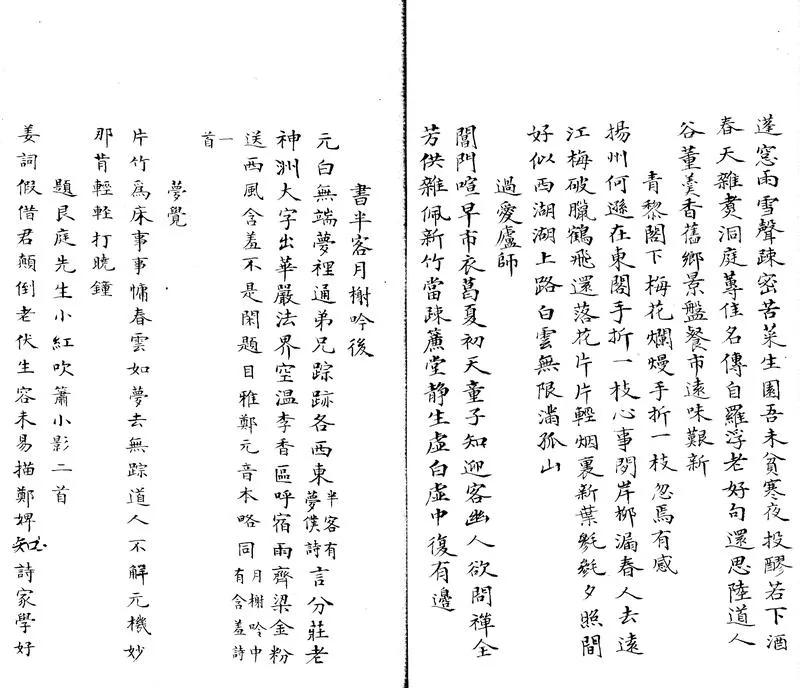 蓬窓雨雪聲疎密苦菜生園吾未貧寒夜投醪若下酒
春天雜煑洞庭蓴佳名傳自羅浮老好句還思陸道人
谷董羮香舊鄉景盤餐市遠味艱新
青黎閣下梅花爛熳手折一枝忽焉有感
揚州何遜在東閣手折一枝心事閒岸柳漏春人去遠
江梅破臘鶴飛還落花片片輕烟裏新葉毿毿夕照間
好似西湖湖上路白雲無限滿孤山
過愛廬師
閶門喧早市衣葛夏初天童子知迎客幽人欲問禪全
芳供雜佩新竹當疎簾堂靜生虛白虛中復有邊
書半客月榭吟後
元白無端夢裡通弟兄踪跡各西東半客有夢僕詩言分莊老
神洲大字出華嚴法界空溫李香區呼宿雨齊梁金粉
送西風含羞不是閑題目雅鄭元音本略同月榭吟中有含羞詩
一首
夢覺
片竹為床事事慵春雲如夢去無踪道人不解元機妙
那肯輕輕打曉鍾
題艮庭先生小紅吹簫小影二首
姜詞假借君顛倒老伏生容未易描鄭婢知詩家學好